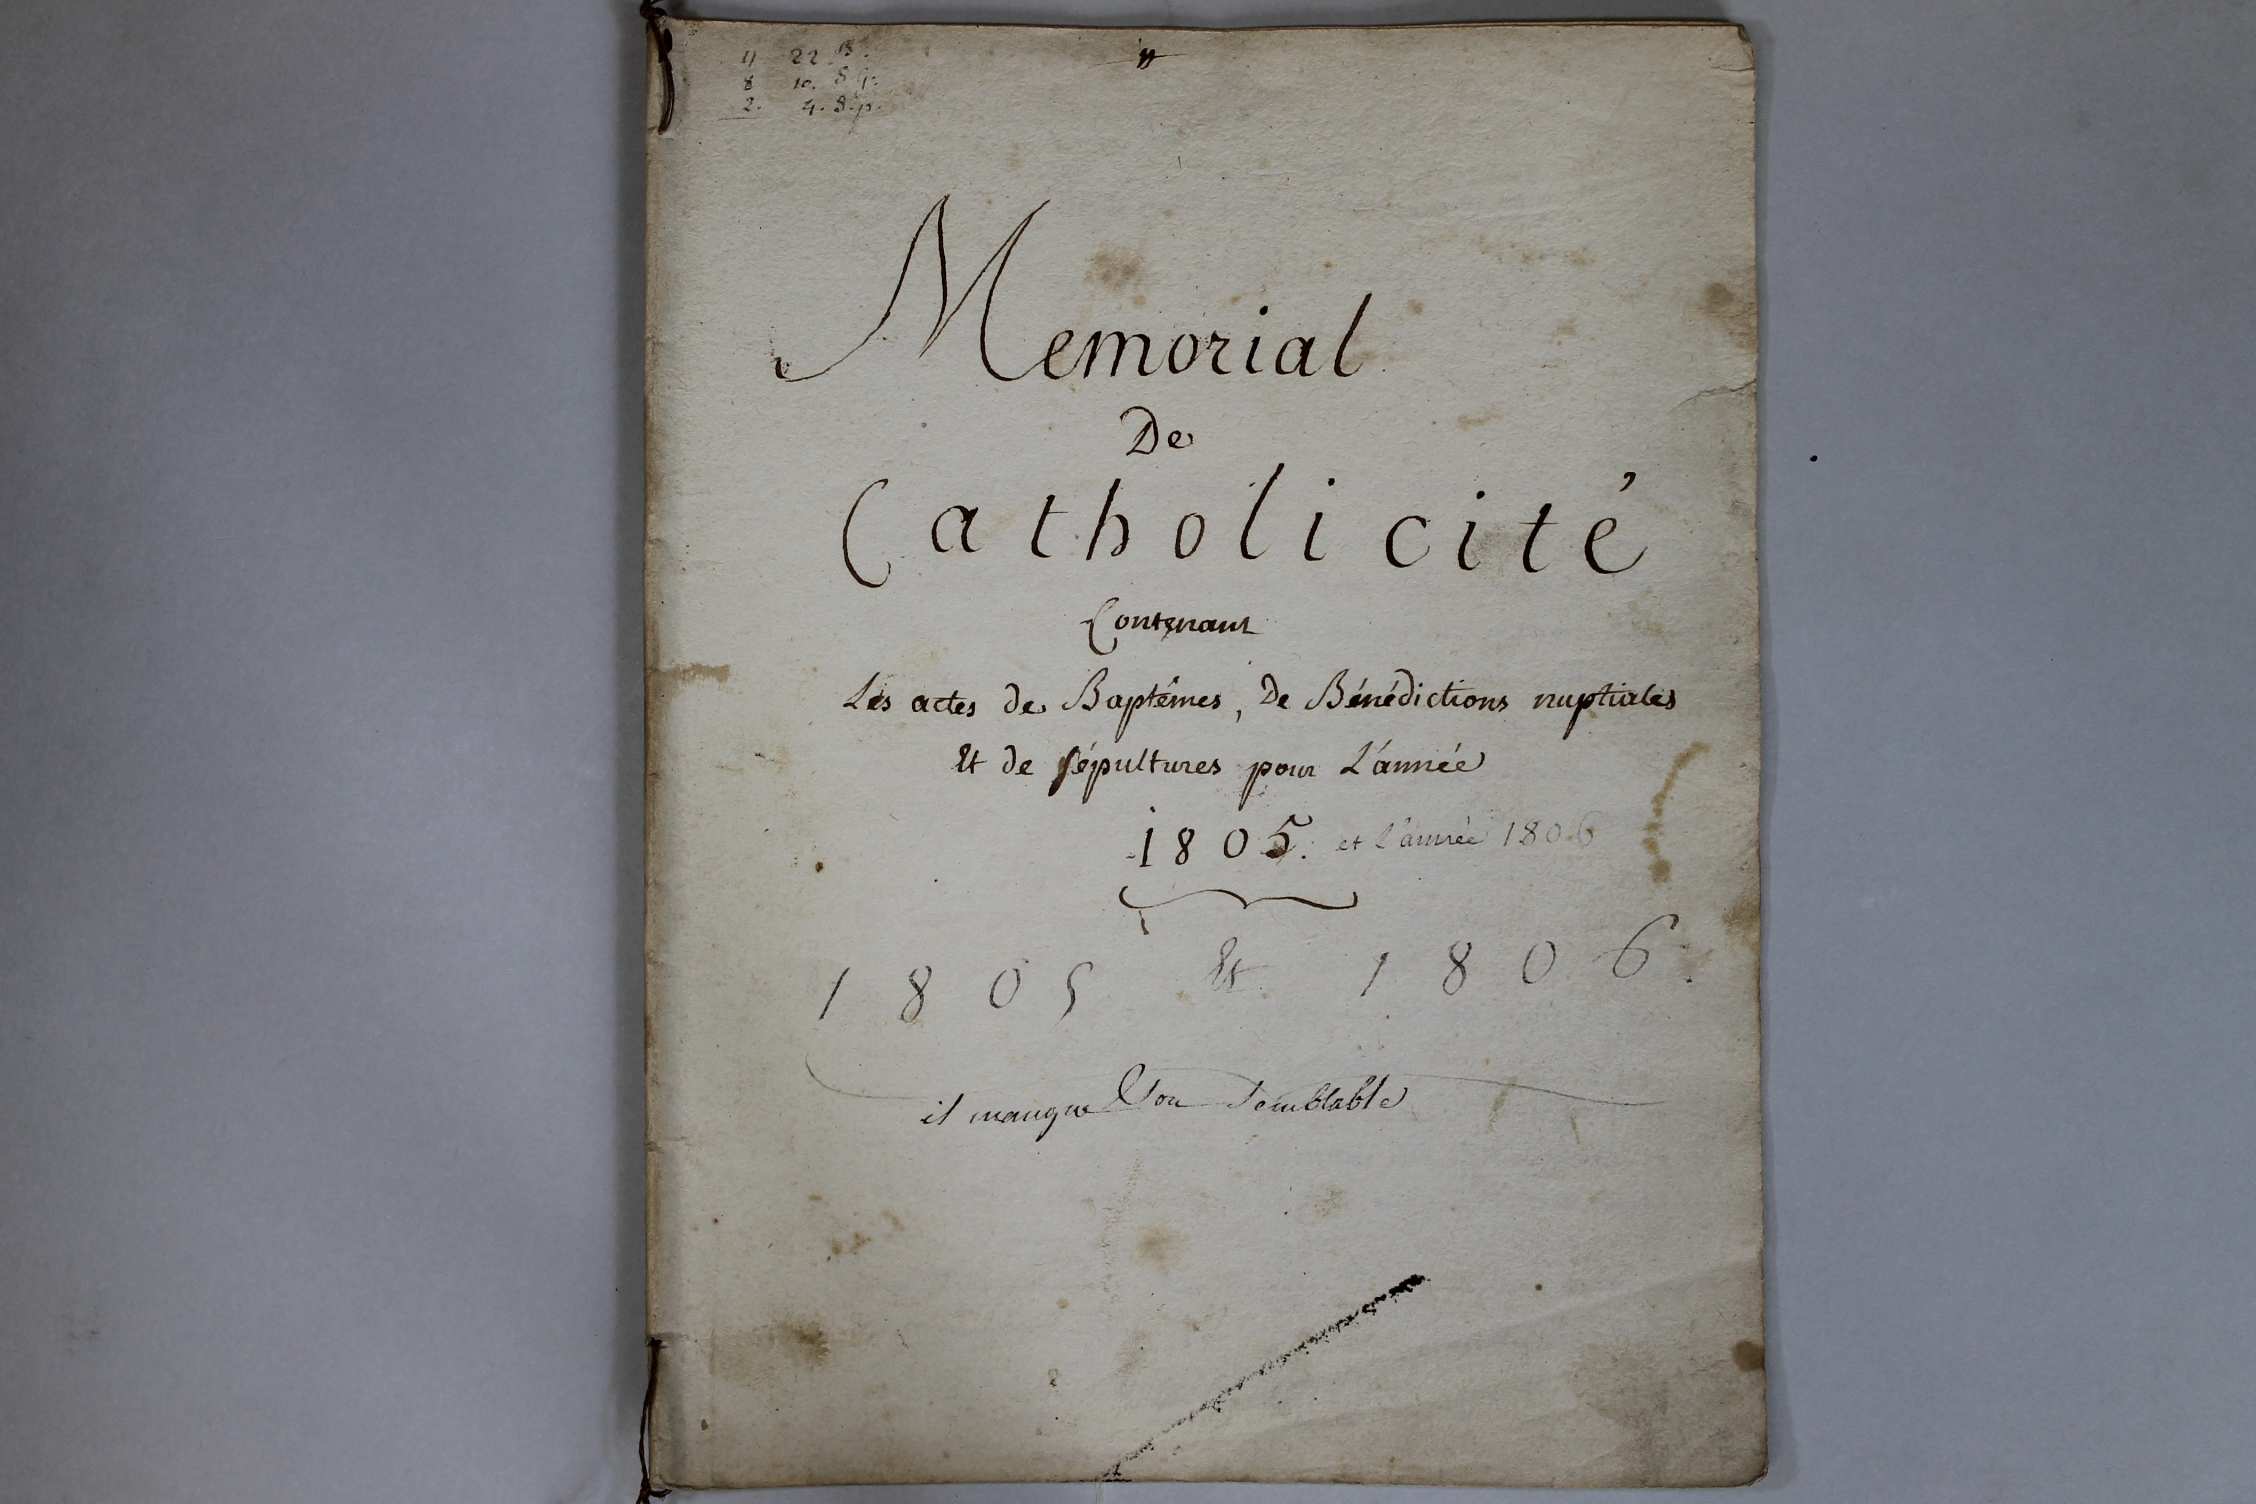 22 B.
8 10. S p.
2. 4. S. p.
Memorial
De
Catholicité
Contenant
Les actes de Baptêmes, De Bénédictions nuptiales
Et de sépultures pour L'année
1805. et l'année 1806
1805 Et 1806.
il manque Son Semblable